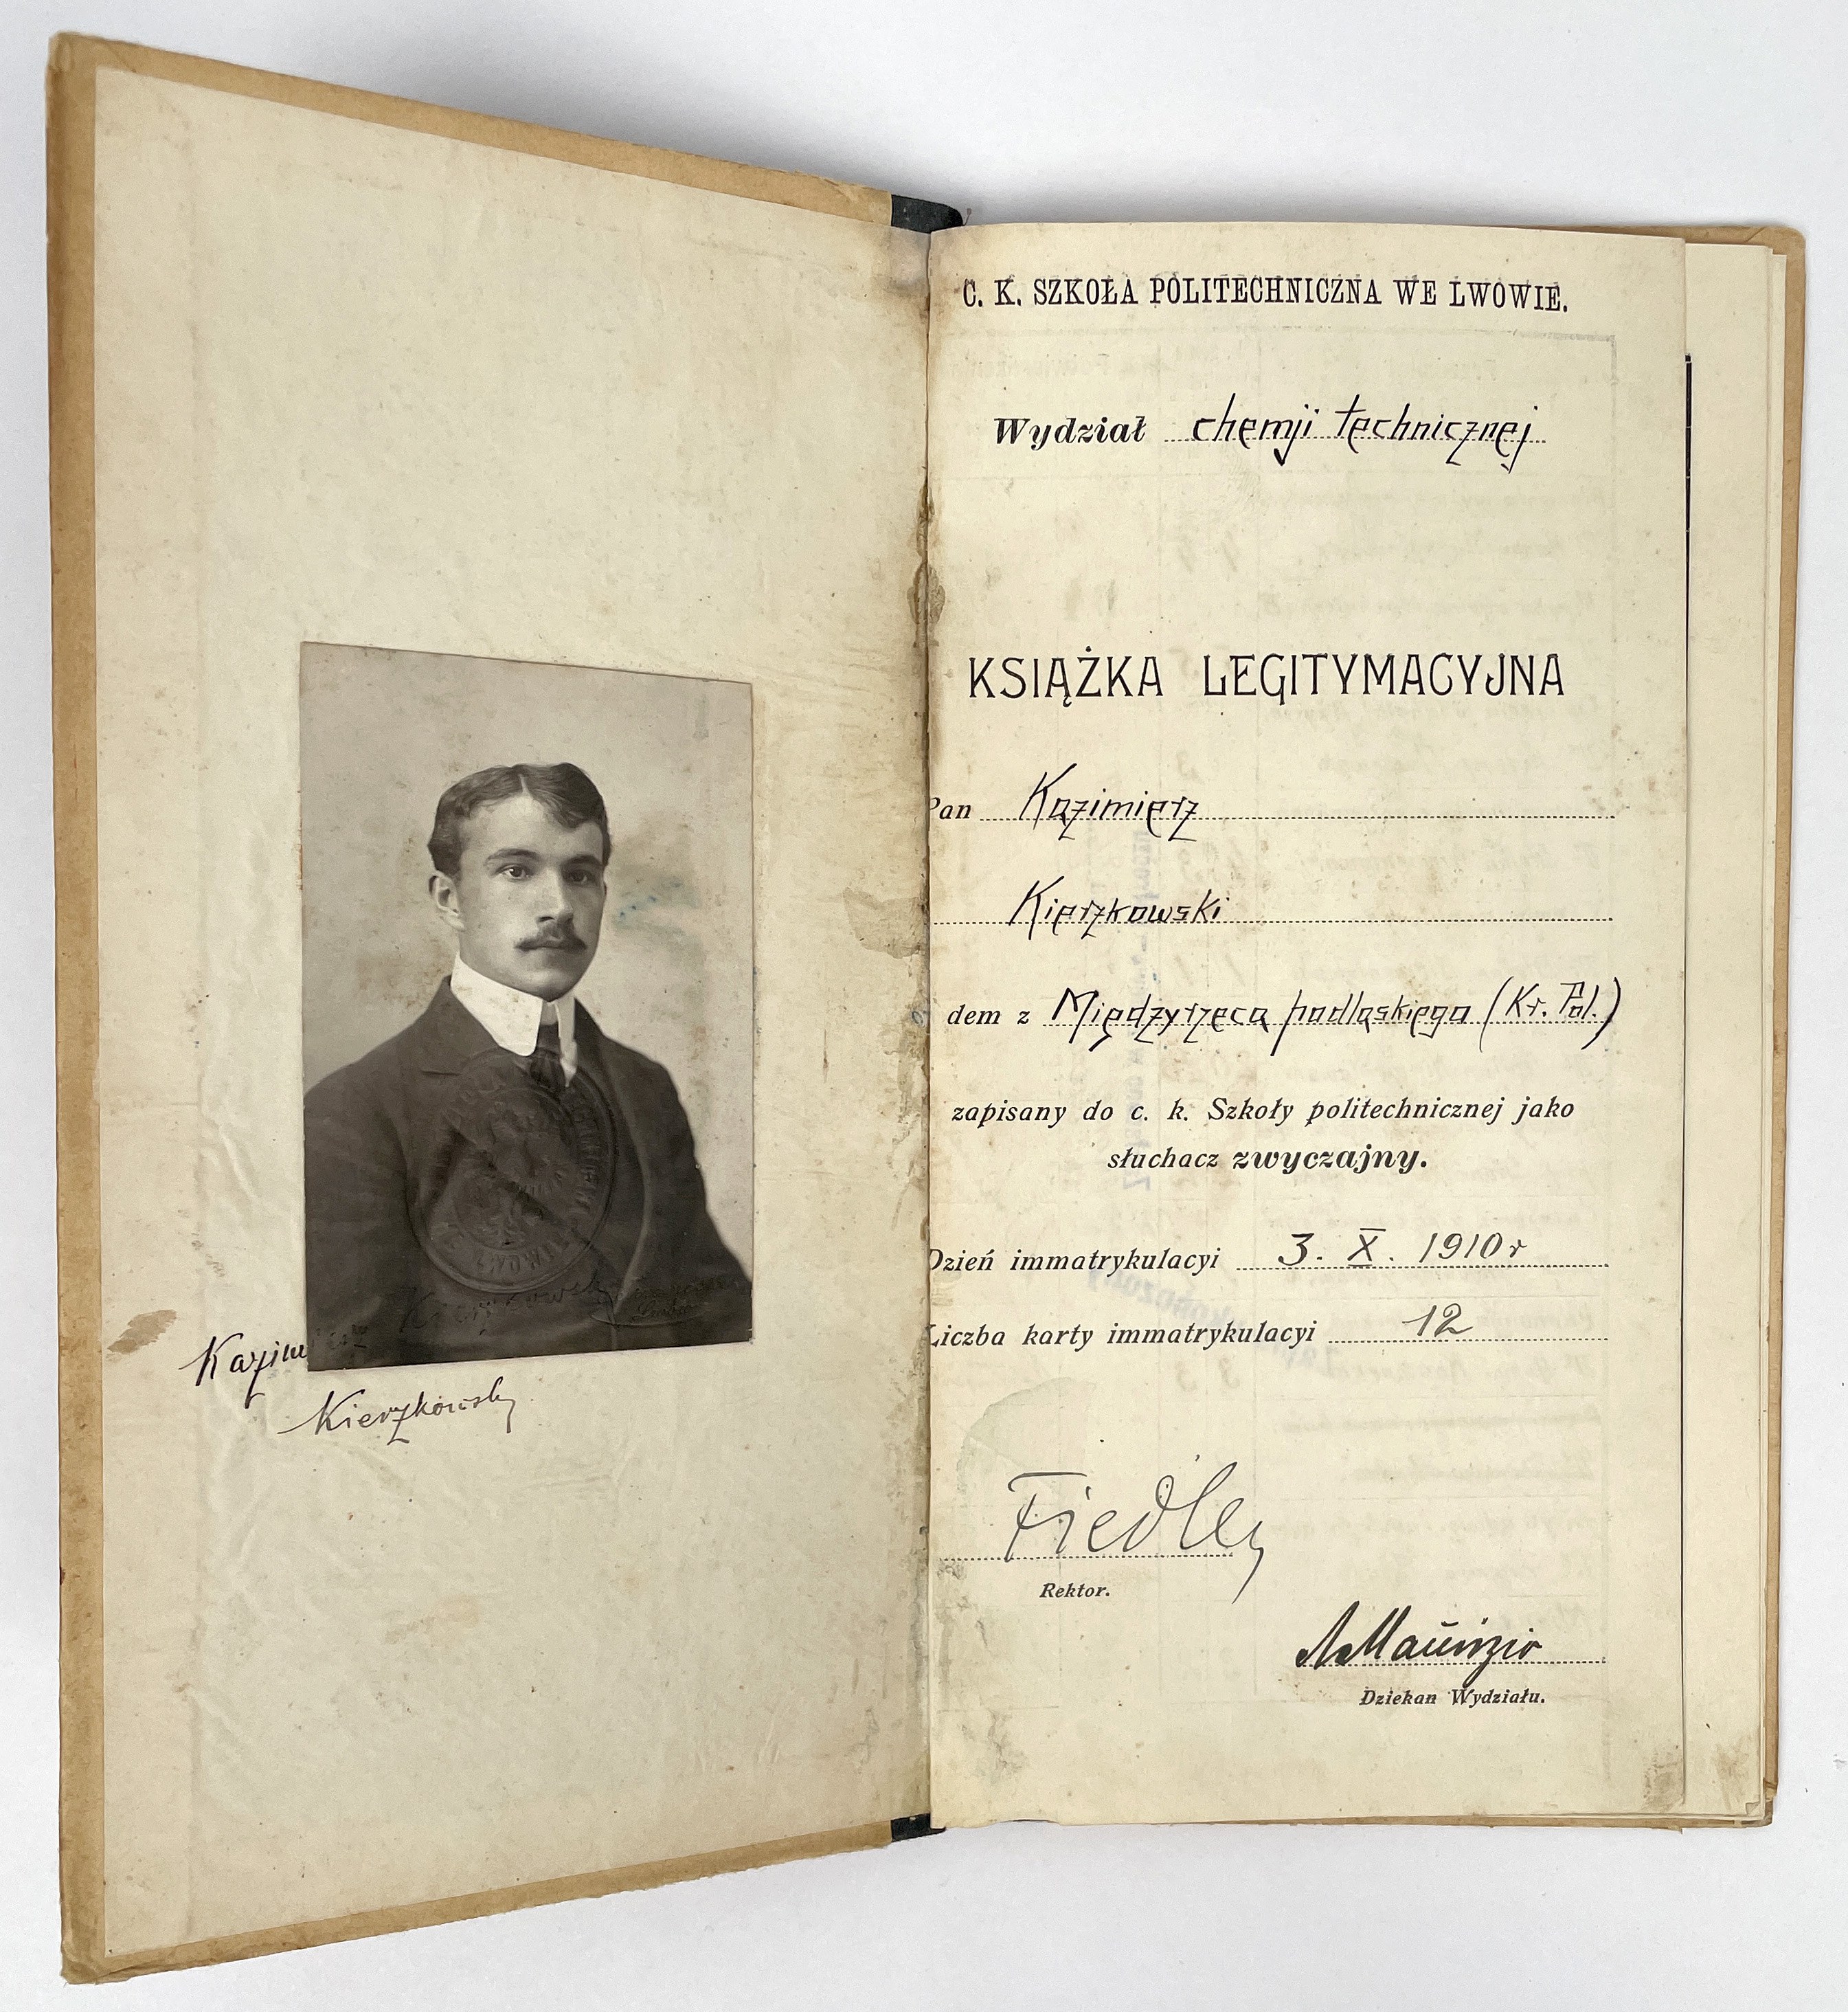 Kazimierz
Kierzkowski
C. K. SZKOŁA POLITECHNICZNA WE LWOWIE.
Wydział chemji technicznej
KSIĄŻKA LEGITYMACYJNA
Pan Kazimierz
Kierzkowski
dem z Międzyrzeca podlaskiego (Kr. Pol.)
zapisany do c. k. Szkoły politechnicznej jako
słuchacz zwyczajny.
Dzień immatrykulacyi 3. X. 1910 r
Liczba karty immatrykulacyi 12
Fiedler
Rektor.
A Maurizio
Dziekan Wydziału.